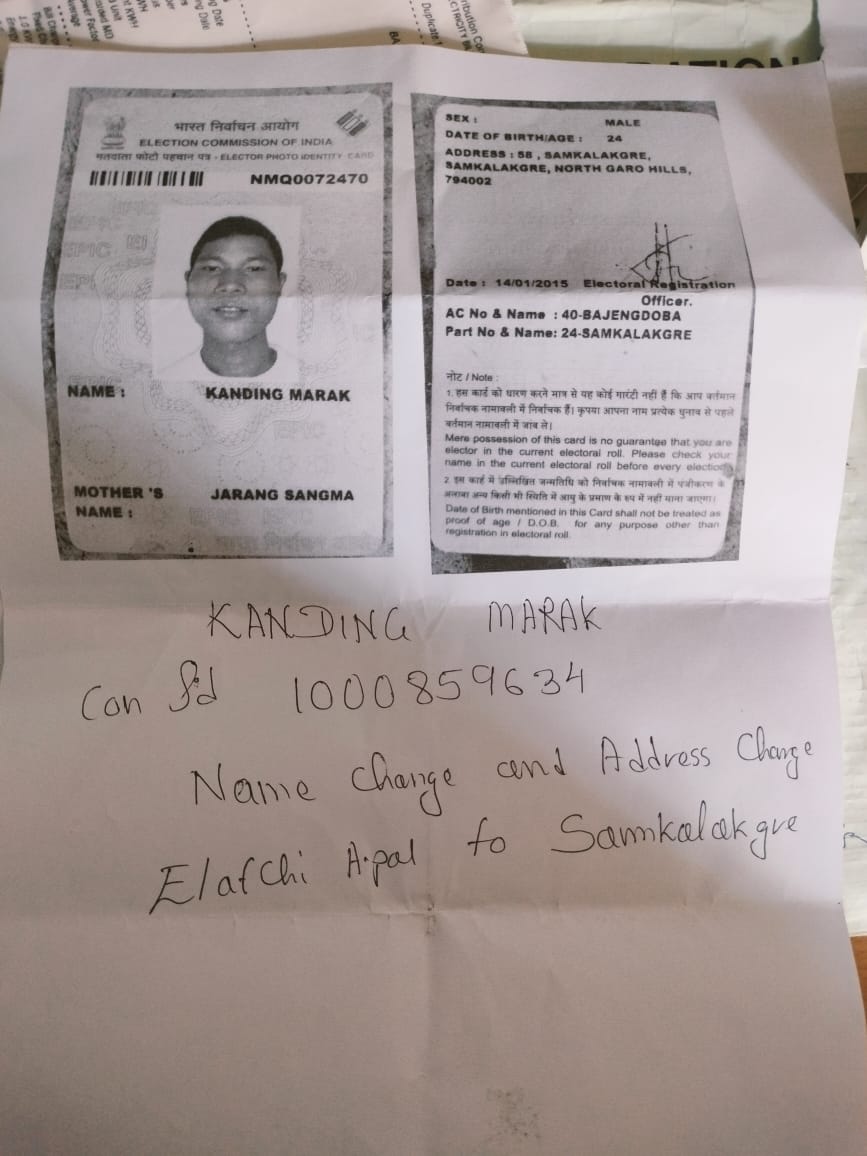 ribution Co
CTRICITY B
Duplicate
BA
ng Date
ng Date
KWH
भारत निर्वाचन आयोग
ELECTION COMMISSION OF INDIA
मतदाता फोटो पहचान पत्र - ELECTOR PHOTO IDENTITY CARD
NMQ0072470
NAME : KANDING MARAK
MOTHER 'S JARANG SANGMA
NAME :
SEX : MALE
DATE OF BIRTH/AGE : 24
ADDRESS : 58 , SAMKALAKGRE,
SAMKALAKGRE, NORTH GARO HILLS,
794002
Date : 14/01/2015 Electoral Registration
Officer.
AC No & Name : 40-BAJENGDOBA
Part No & Name: 24-SAMKALAKGRE
नोट / Note :
1. इस कार्ड को धारण करने मात्र से यह कोई गारंटी नहीं हैं कि आप वर्तमान
निर्वाचक नामावली में निर्वाचक हैं। कृपया आपना नाम प्रत्येक चुनाव से पहले
वर्तमान नामावली में जांच ले।
Mere possession of this card is no guarantee that you are
elector in the current electoral roll. Please check your
name in the current electoral roll before every election
2. इस कार्ड में उल्लिखित जन्मतिथि को निर्वाचक नामावली में पंजीकरण के
अलावा अन्य किसी भी स्थिति में आयु के प्रमाण के रुप में नहीं माना जाएगा।
Date of Birth mentioned in this Card shall not be treated as
proof of age / D.O.B. for any purpose other than
registration in electoral roll.
KANDING MARAK
Con Id 1000859634
Name Change and Address Change
Elafchi A.pal to Samkalakgre